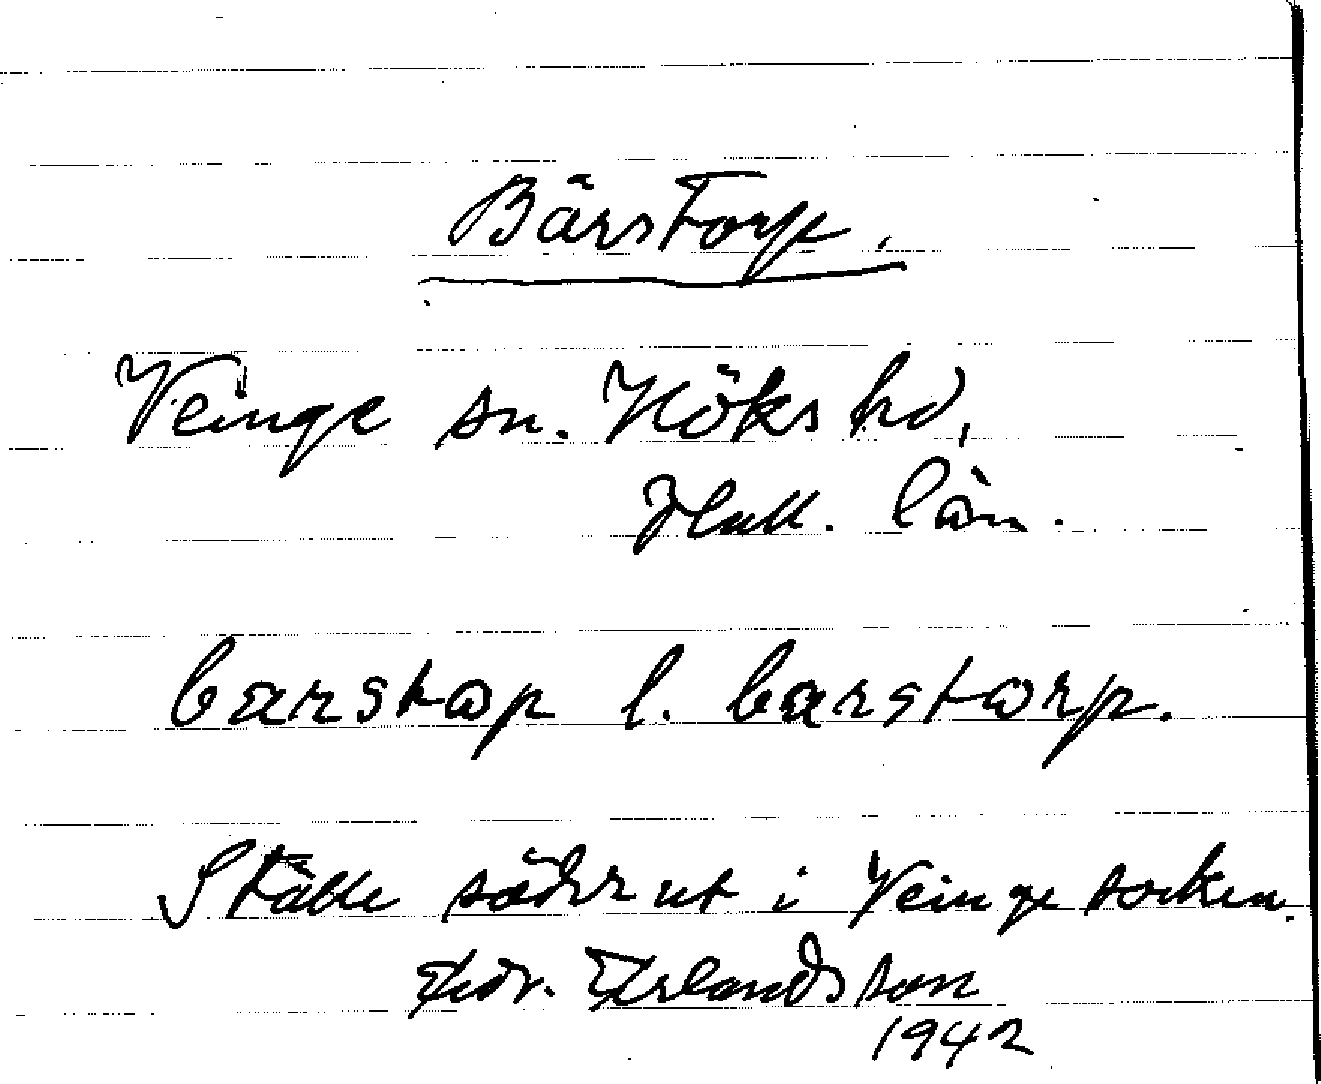 Bärstorp.
Veinge sn. Höks hd,
Hall. län.
bærstɷp l. bærstɷrp.
Ställe söder ut i Veinge socken.
Edv. Erlandsson
1942